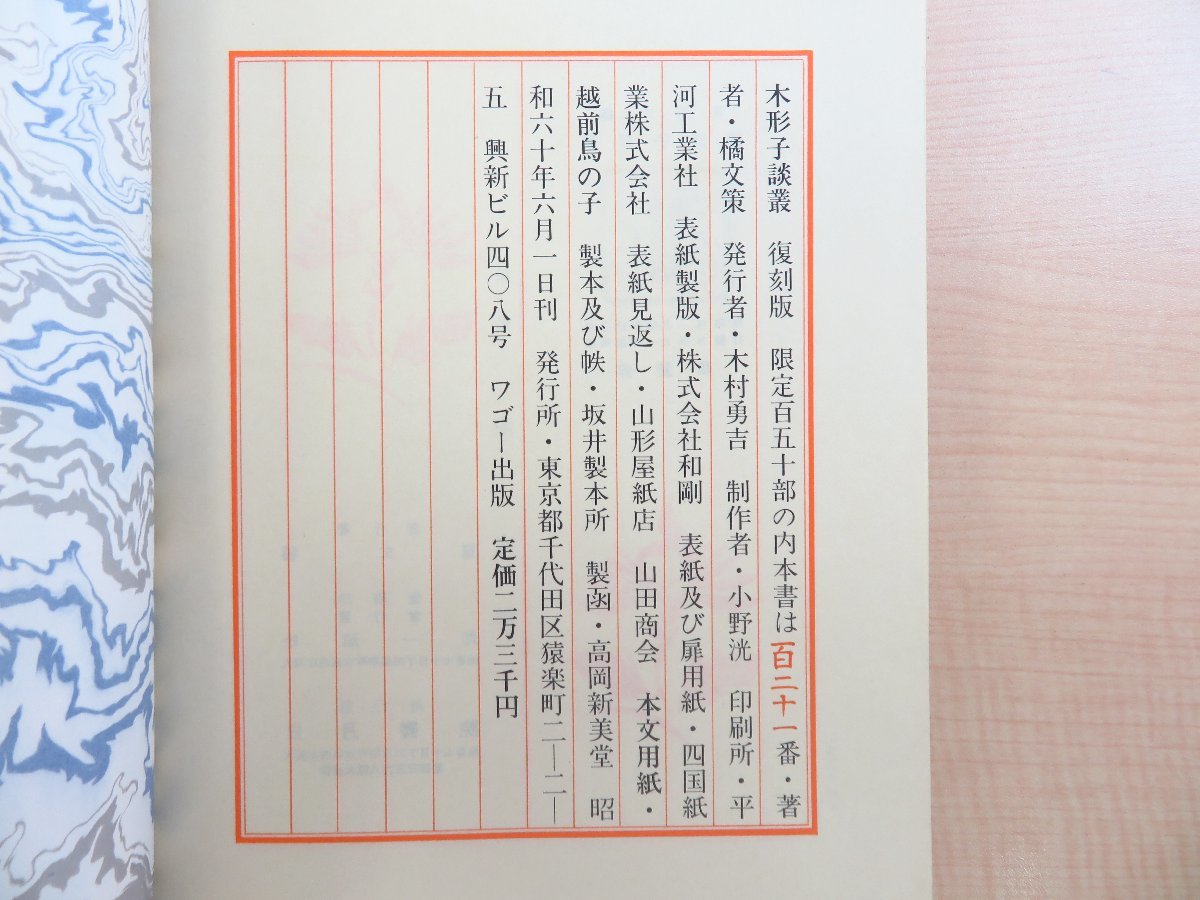 木形子談叢　復刻版　限定百五十部の内本書は百二十一番・著
者・橘文策　発行者・木村勇吉　制作者・小野洸　印刷所・平
河工業社　表紙製版・株式会社和剛　表紙及び扉用紙・四国紙
業株式会社　表紙見返し・山形屋紙店　山田商会　本文用紙・
越前鳥の子　製本及び帙・坂井製本所　製函・高岡新美堂　昭
和六十年六月一日刊　発行所・東京都千代田区猿楽町二―二―
五　興新ビル四〇八号　ワゴー出版　定価二万三千円